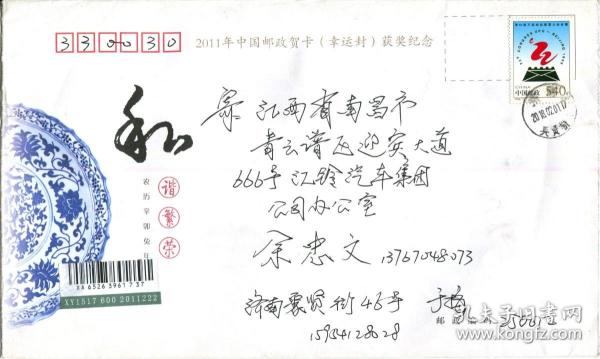 330030
2011年中国邮政贺卡（幸运封）获奖纪念
中国邮政
540
和
谐
繁
荣
农历辛卯兔年
寄 江西省南昌市
青云谱区迎宾大道
666号江铃汽车集团
公司办公室
余忠文 13767048073
XA 6526 3961 7 37
XY1517 600 2011222
济南聚贤街46号
15954128028
邮政编码
孔夫子旧书网